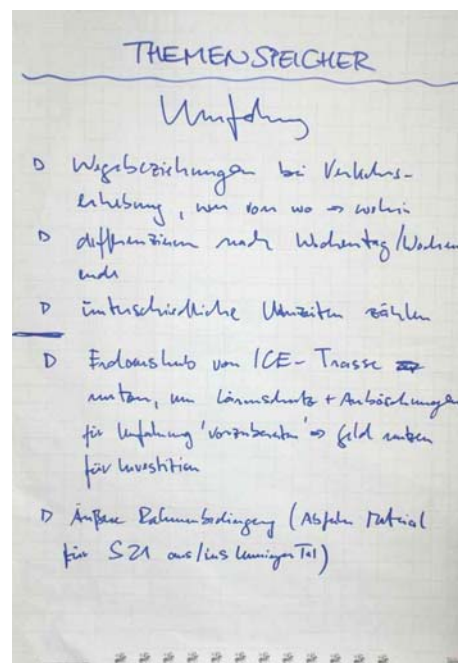 THEMENSPEICHER
Umfahrung
D Wegebeziehungen bei Verkehrs-
erhebung, wer von wo => wohin
D differenzieren nach Wochentag/Wochen
ende
D unterschiedliche Uhrzeiten zählen
D Erdaushub von ICE-Trasse
nutzen, um Lärmschutz + Anböschungen
für Umfahrung 'vorzubereiten' => Geld nutzen
für Investition
D Äußere Rahmenbedingung (Abfuhr Material
für S21 aus/ins Tal)